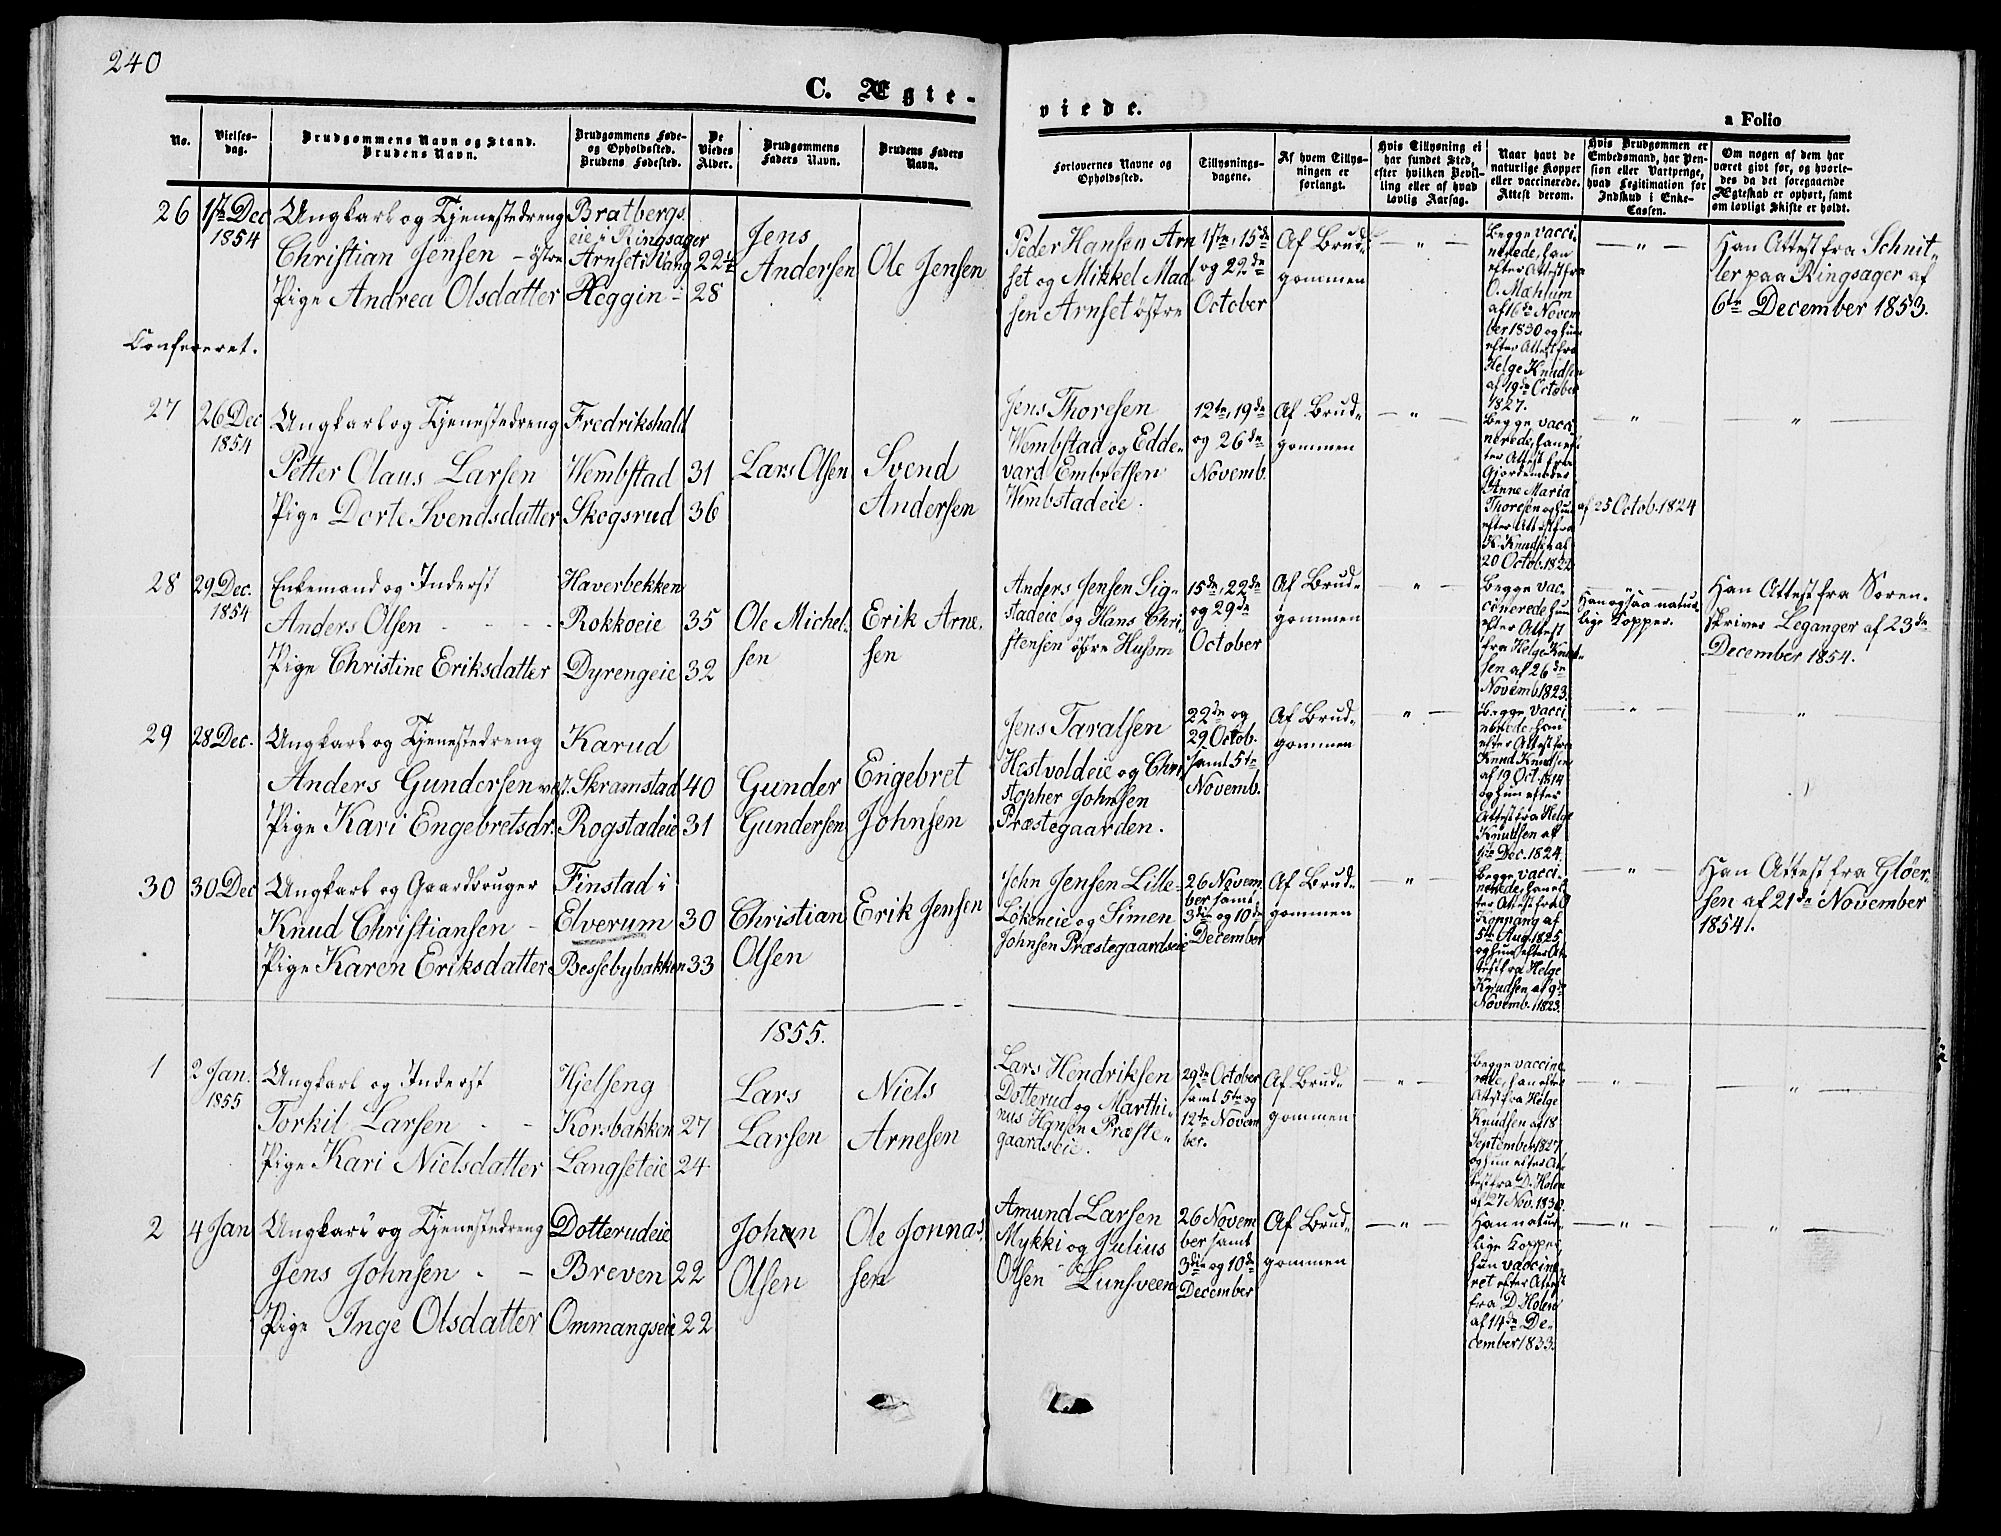 240
C. Ægte-
viede.
a Folio
No.
Vielses-
dag.
Brudgommens Navn og Stand.
Brudens Navn.
Brudgommens Føde-
og Opholdssted.
Brudens Fødested.
De
Viedes
Alder.
Brudgommens
Faders Navn.
Brudens Faders
Navn.
Forlovernes Navne og
Opholdssted.
Tillysnings-
dagene.
Af hvem Tillys-
ningen er
forlangt.
Hvis Tillysning ei
har fundet Sted,
efter hvilken Bevil-
ling eller af hvad
lovlig Aarsag.
Naar havt de
naturlige Kopper
eller vaccinerede.
Attest derom.
Hvis Brudgommen er
Embedsmand, har Pen-
sion eller Vartpenge,
hvad Legitimation for
Indskud i Enke-
Cassen.
Om nogen af dem har
været gift før, og hvorle-
des da det foregaaende
Ægteskab er ophørt, samt
om lovligt Skifte er holdt.
26
1ste Dec
1854
Ungkarl og Tjenestedreng
Christian Jensen - østre
Pige Andrea Olsdatter
Bratbergs
eie i Ringsager
Arnset i Vang
Heggin -
22½
28
Jens
Andersen
Ole Jensen
Peder Hansen Arn
set og Mikkel Mad
sen Arnset østre
1ste, 15de
og 22de
October
Af Brud-
gommen
- " -
Begge vacci-
nerede, han
efter Attest fra
O. Mæhlum
af 16de Novem
ber 1830 og hun
efter Attest fra
Helge Knudsen
af 19de October
1827.
- " -
Han Attest fra Schnit-
ler paa Ringsager af
6te December 1853.
Confereret.
27
26 Dec
1854
Ungkarl og Tjenestedreng
Petter Claus Larsen
Pige Dorte Svendsdatter
Fredrikshald
Wembstad
Skogsrud
31
36
Lars Olsen
Svend
Andersen
Jens Thoresen
Wembstad og Edde-
vard Embretsen
Wembstadeie.
12te, 19de
og 26de
Novemb.
Af Brud-
gommen
- " -
Begge vacci-
nerede, han ef-
ter Attest fra
Gjordemoder
Anne Maria
Thoresen og hun
efter Attest fra
K. Knudsen af
20 Octob. 1822
"
af 25 Octob. 1824
- " -
28
29 Dec.
1854
Enkemand og Inderst
Anders Olsen
Pige Christine Eriksdatter
Haverbekken
Rokkoeie
Dyrengeie
35
32
Ole Michel-
sen
Erik Arne-
sen
Anders Jensen Sig-
stadeie og Hans Chri-
stensen østre Husom
15de, 22de
og 29de
October
Af Brud-
gommen
" -
Begge vac-
cinerede hun
efter Attest
fra Helge Knud-
sen af 26de
Novemb. 1823.
- " -
Han ogsaa natur-
lige Kopper.
Han Attest fra Soren-
skriver Leganger af 23de
December 1854.
29
28 Dec.
Ungkarl og Tjenestedreng
Anders Gundersen
Pige Kari Engebretsdr.
Karud
Skramstad
Rogstadeie
40
31
Gunder
Gundersen
Engebret
Johnsen
Jens Taralsen
Hestvoldeie og Chri-
stopher Johnsen
Præstegaarden.
22de og
29 Octob.
samt 5te
Novemb.
Af Brud-
gommen
- " -
Begge vacci-
nerede, han
efter Attest fra
Knud Knudsen
af 19 Oct. 1814
og hun efter
Attest fra Helge
Knudsen af
1ste Dec. 1824.
- " -
"
30
30 Dec
Ungkarl og Gaardbruger
Knud Christiansen -
Pige Karen Eriksdatter
Finstad i
Elverum
Bessebybakken
30
33
Christian
Olsen
Erik Jensen
John Jensen Lille-
Lökeneie og Simen
Johnsen Præstegaardseie
26 Novem
ber samt
3die og 10de
December
Af Brud-
gommen
- " -
Begge vacci-
nerede, han ef-
ter Attest fra
Koppang af
5te Aug. 1825
og hun efter At-
test fra Helge
Knudsen af 9de
Novemb. 1823.
- " -
Han Attest fra Glöer-
sen af 21de November
1854.
1855.
1
2 Jan.
1855
Ungkarl og Inderst
Torkil Larsen - -
Pige Kari Nielsdatter
Hjelseng
Korsbakken
Langseteie
27
24
Lars
Larsen
Niels
Arnesen
Lars Hendriksen
Dotterud og Marthi-
nus Hansen Præste-
gaardseie.
29de October
samt 5te og
12te Novem
ber.
Af Brud-
gommen
- " -
Begge vaccine
rede, han efter
Attest fra Helge
Knudsen af 18
September 1827
og hun efter At-
test fra D. Holen
af 27 Nov. 1830.
- " -
- " -
2
4 Jan
Ungkarl og Tjenestedreng
Jens Johnsen - -
Pige Inge Olsdatter
Dotterudeie
Breven
Ommangseie
22
22
Johan
Olsen
Ole Jonnas-
sen
Amund Larsen
Mykki og Julius
Olsen Lunsveen
26 Novem
ber samt
3die og 10de
December
Af Brud-
gommen
- " -
Han natur-
lige Kopper,
hun vaccine-
ret efter Attest
fra D. Holen
af 14de De-
cember 1833.
- " -
"